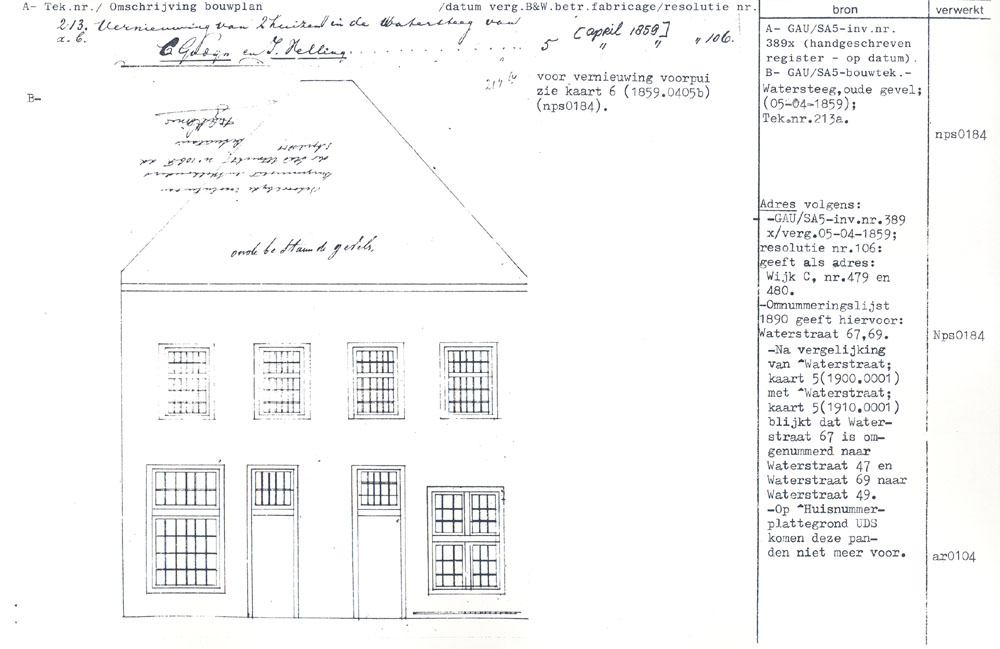 A- Tek.nr./ Omschrijving bouwplan /datum verg.B&W.betr.fabricage/resolutie nr.
213. Vernieuwing van 2 huizen in de Watersteeg van
a.b. C. en J. Helling. 5 [april 1859] " " " 106.
B-
voor vernieuwing voorpui
zie kaart 6 (1859.0405b)
(nps0184).
oude bestaande gevels,
bron
A- GAU/SA5-inv.nr.
389x (handgeschreven
register - op datum).
B- GAU/SA5-bouwtek.-
Watersteeg,oude gevel;
(05-04-1859);
Tek.nr.213a.
Adres volgens:
-GAU/SA5-inv.nr.389
x/verg.05-04-1859;
resolutie nr.106:
geeft als adres:
Wijk C, nr.479 en
480.
-Omnummeringslijst
1890 geeft hiervoor:
Waterstraat 67,69.
-Na vergelijking
van ^Waterstraat;
kaart 5(1900.0001)
met ^Waterstraat;
kaart 5(1910.0001)
blijkt dat Water-
straat 67 is om-
genummerd naar
Waterstraat 47 en
Waterstraat 69 naar
Waterstraat 49.
-Op ^Huisnummer-
plattegrond UDS
komen deze pan-
den niet meer voor.
verwerkt
nps0184
Nps0184
ar0104